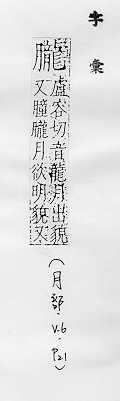 字彙
朧
盧容切音龍月出貌
又朣朧月欲明貌又
(月部.V.6.P21)